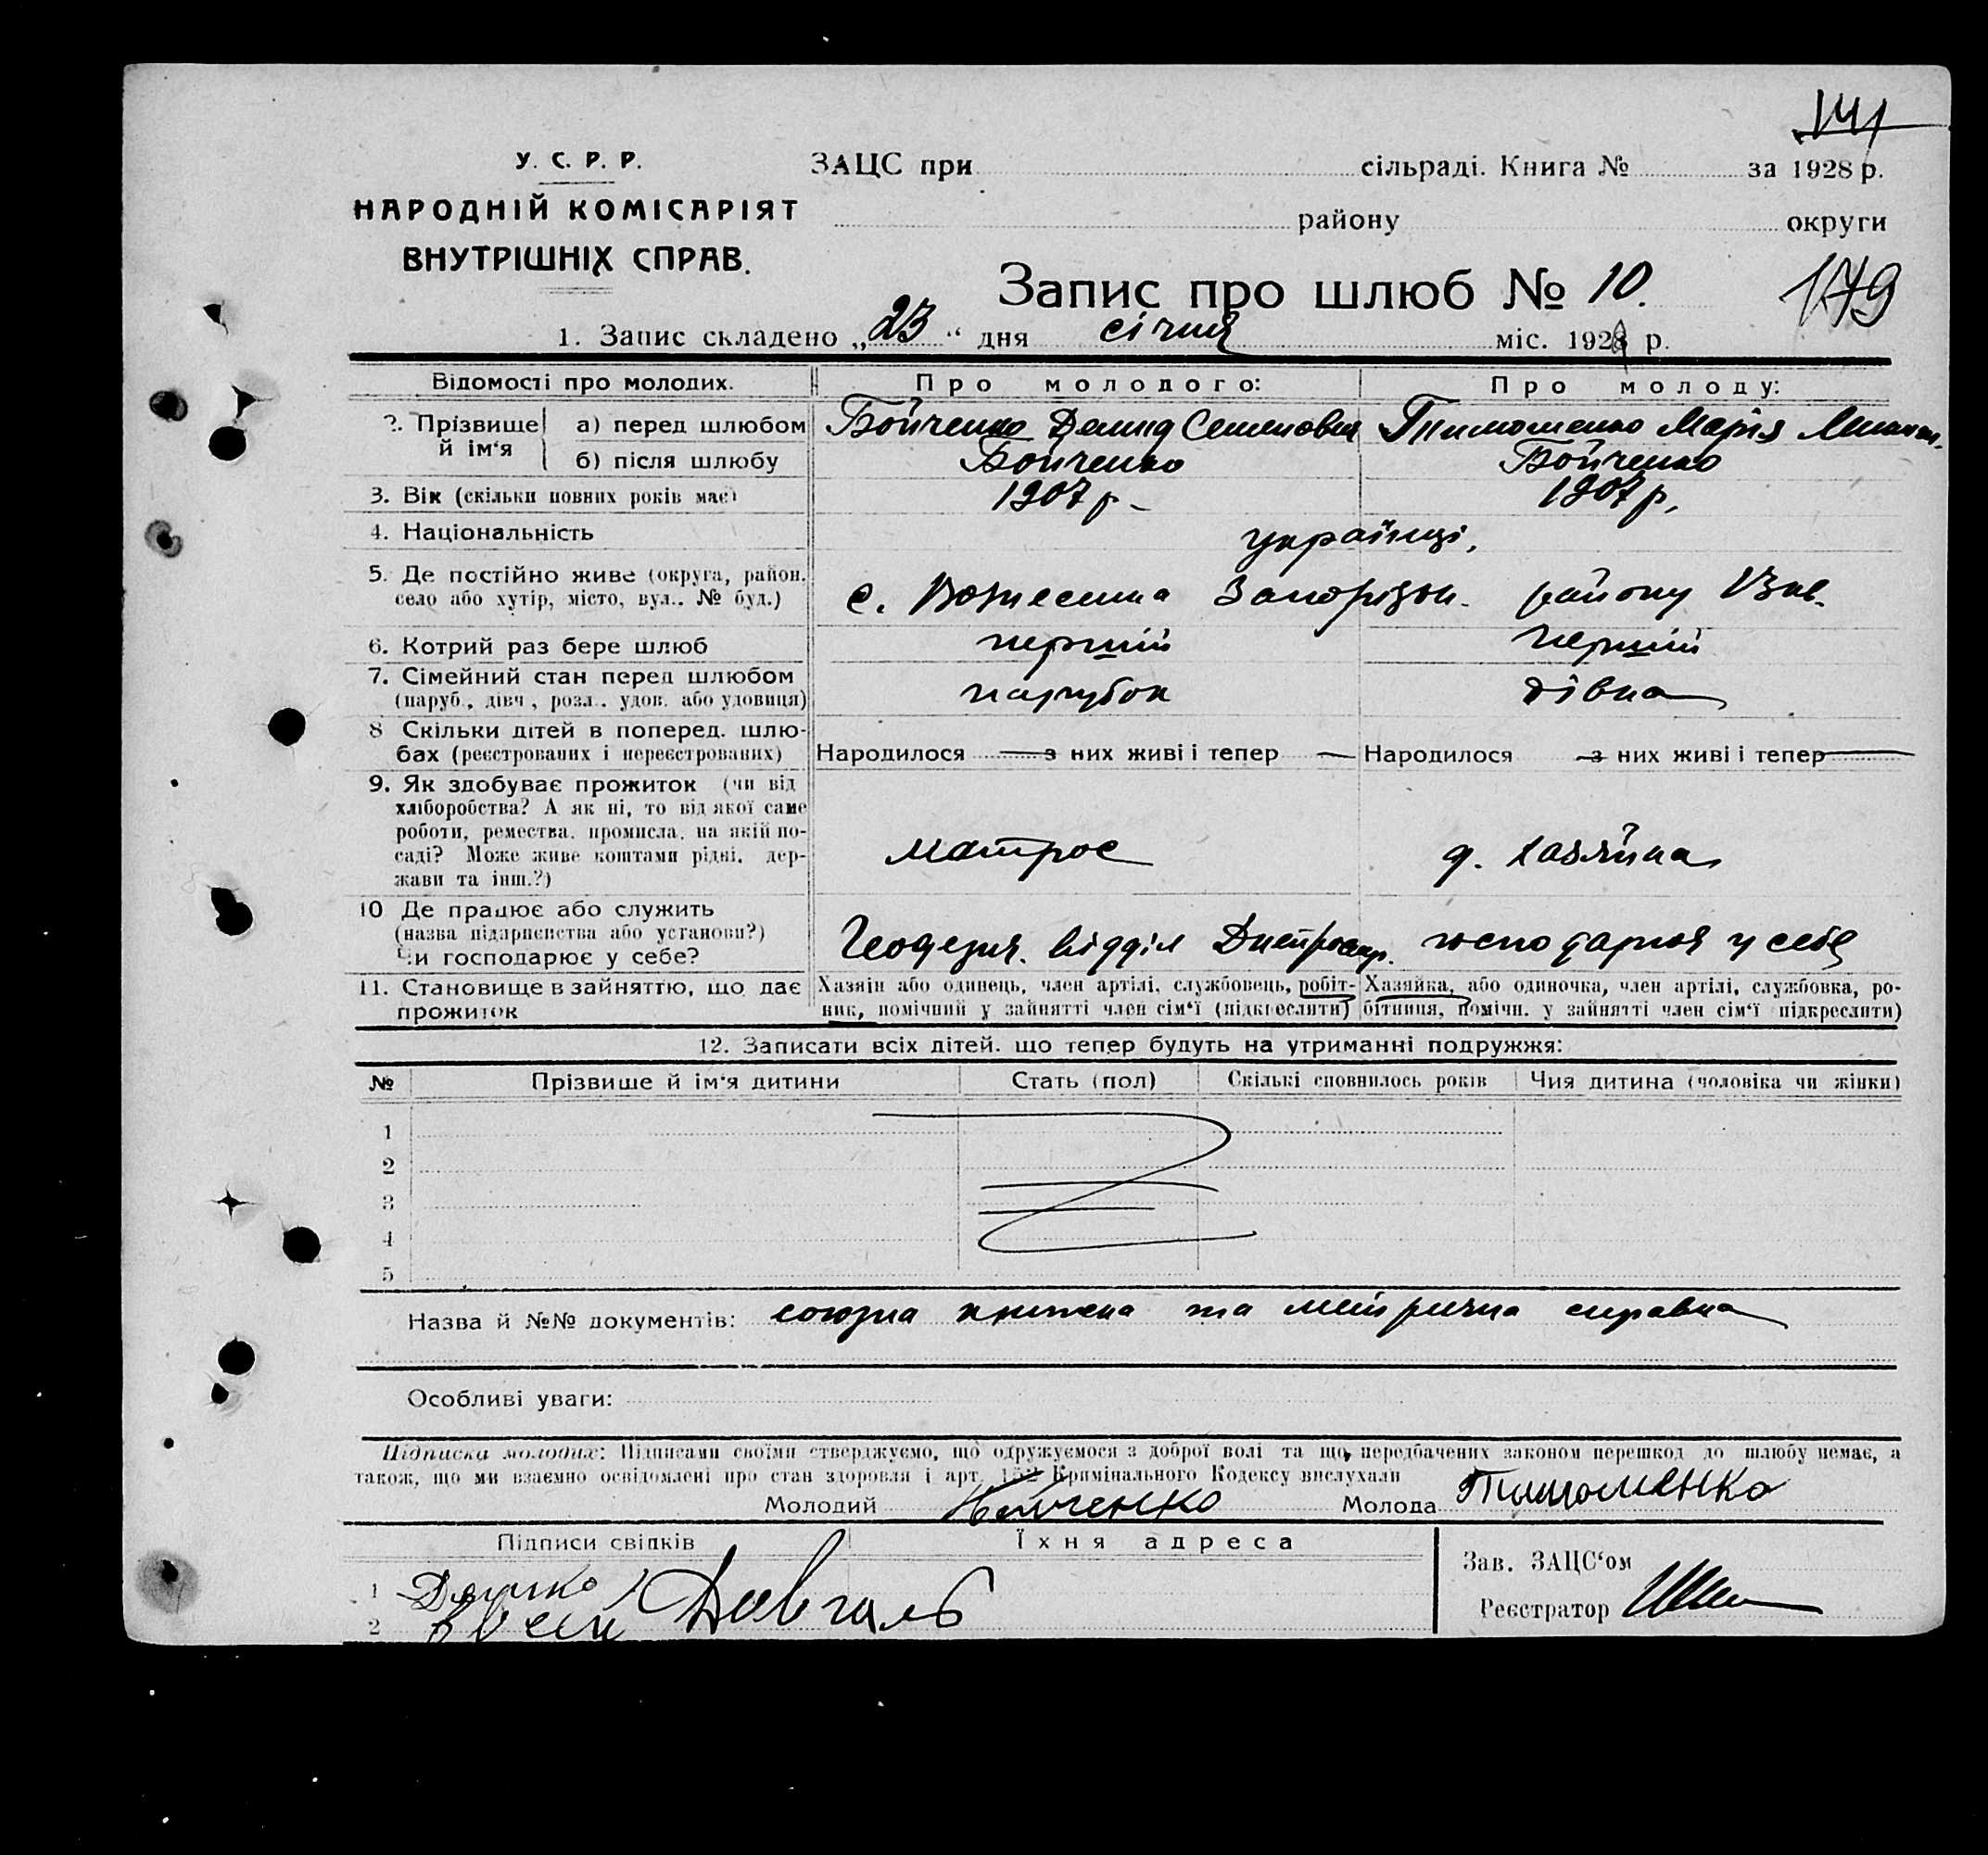 141
У. С. Р. Р.
НАРОДНІЙ КОМІСАРІЯТ
ВНУТРІШНІХ СПРАВ.
ЗАЦС при сільраді. Книга № за 1928 р.
району округи
Запис про шлюб № 10.
179
1. Запис складено „23“ дня січня міс. 1928 р.
Відомості про молодих. Про молодого: Про молоду:
2. Прізвище й ім'я а) перед шлюбом Бойченко Демид Семенович Тимошенко Марія
б) після шлюбу Бойченко Бойченко
3. Вік (скільки повних років має) 1907 р. 1907 р.
4. Національність українці.
5. Де постійно живе (округа, район,
село або хутір, місто, вул.. № буд.) с. Вознесенка Запорізьк. району
6. Котрий раз бере шлюб перший перший
7. Сімейний стан перед шлюбом
(паруб., дівч., розл., удов. або удовиця) парубок дівка
8 Скільки дітей в поперед. шлю-
бах (реєстрованих і нереєстрованих) Народилося — з них живі і тепер — Народилося — з них живі і тепер —
9. Як здобуває прожиток (чи від
хліборобства? А як ні, то від якої саме
роботи, ремества, промисла, на якій по-
саді? Може живе коштами рідні, дер-
жави та інш.?) матрос д. хазяйка
10 Де працює або служить
(назва підприємства або установи?)
Чи господарює у себе? Геодезич. відділ господарює у себе
11. Становище в зайняттю, що дає
прожиток
Хазяін або одинець, член артілі, службовець, робіт-
ник, помічний у зайнятті член сім'ї (підкреслити)
Хазяйка, або одиночка, член артілі, службовка, ро-
бітниця, помічн. у зайнятті член сім'ї підкреслити)
12. Записати всіх дітей. що тепер будуть на утриманні подружжя:
№ Прізвище й ім'я дитини Стать (пол) Скількі сповнилось років Чия дитина (чоловіка чи жінки)
1
2
3
4
5
Назва й №№ документів: союзна книжка та метрична справка
Особливі уваги:
Підписка молодих: Підписами своїми стверджуємо, що одружуємося з доброї волі та що, передбачених законом перешкод до шлюбу немає, а
також, що ми взаємно освідомлені про стан здоровля і арт. 152 Кримінального Кодексу вислухали
Молодий Бойченко Молода Тимошенко
Підписи свідків Їхня адреса
Зав. ЗАЦС'ом
1
2 Довгаль
Реєстратор